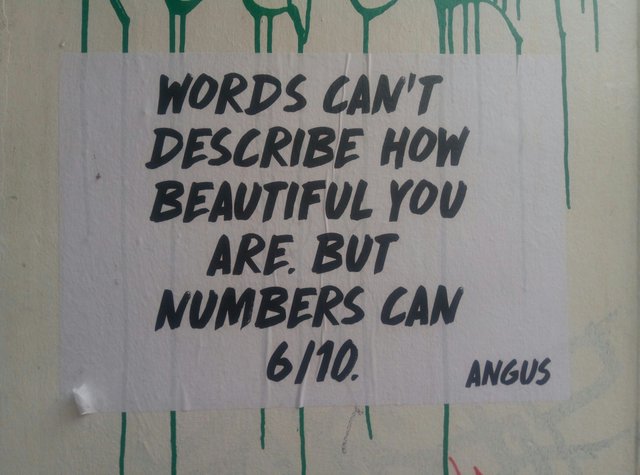 WORDS CAN'T
DESCRIBE HOW
BEAUTIFUL YOU
ARE. BUT
NUMBERS CAN
6/10.
ANGUS